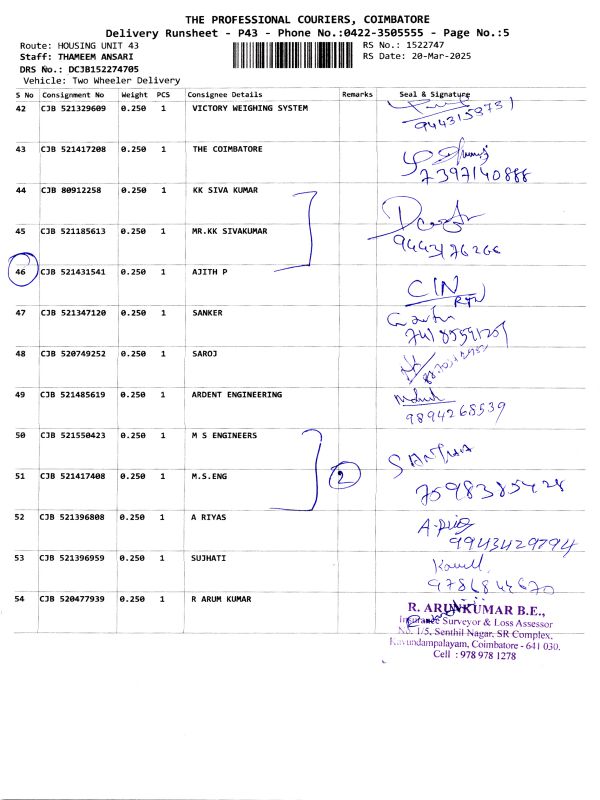 THE PROFESSIONAL COURIERS, COIMBATORE
Delivery Runsheet - P43 - Phone No.:0422-3505555 - Page No.:5
Route: HOUSING UNIT 43 RS No.: 1522747
Staff: THAMEEM ANSARI RS Date: 20-Mar-2025
DRS No.: DCJB152274705
Vehicle: Two Wheeler Delivery
S No Consignment No Weight PCS Consignee Details Remarks Seal & Signature
42 CJB 521329609 0.250 1 VICTORY WEIGHING SYSTEM
43 CJB 521417208 0.250 1 THE COIMBATORE
7397140888
44 CJB 80912258 0.250 1 KK SIVA KUMAR
45 CJB 521185613 0.250 1 MR.KK SIVAKUMAR
46 CJB 521431541 0.250 1 AJITH P
CIN
RTN
47 CJB 521347120 0.250 1 SANKER
48 CJB 520749252 0.250 1 SAROJ
49 CJB 521485619 0.250 1 ARDENT ENGINEERING
9894268539
50 CJB 521550423 0.250 1 M S ENGINEERS
51 CJB 521417408 0.250 1 M.S.ENG 2
7598385428
52 CJB 521396808 0.250 1 A RIYAS
9943429794
53 CJB 521396959 0.250 1 SUJHATI
54 CJB 520477939 0.250 1 R ARUM KUMAR
R. ARUNKUMAR B.E.,
Insurance Surveyor & Loss Assessor
No. 1/5, Senthil Nagar, SR Complex,
Kavundampalayam, Coimbatore - 641 030.
Cell : 978 978 1278